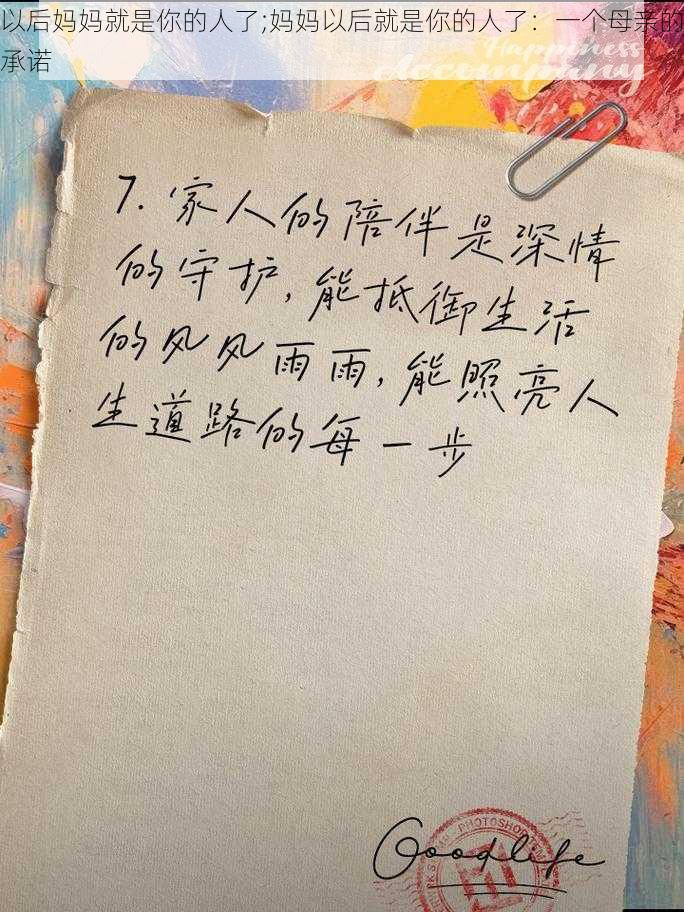 以后妈妈就是你的人了;妈妈以后就是你的人了：一个母亲的
承诺
Happiness
Accompany
7. 家人的陪伴是深情
的守护, 能抵御生活
的风风雨雨, 能照亮人
生道路的每一步
Goodlife
PHOTOSHOP